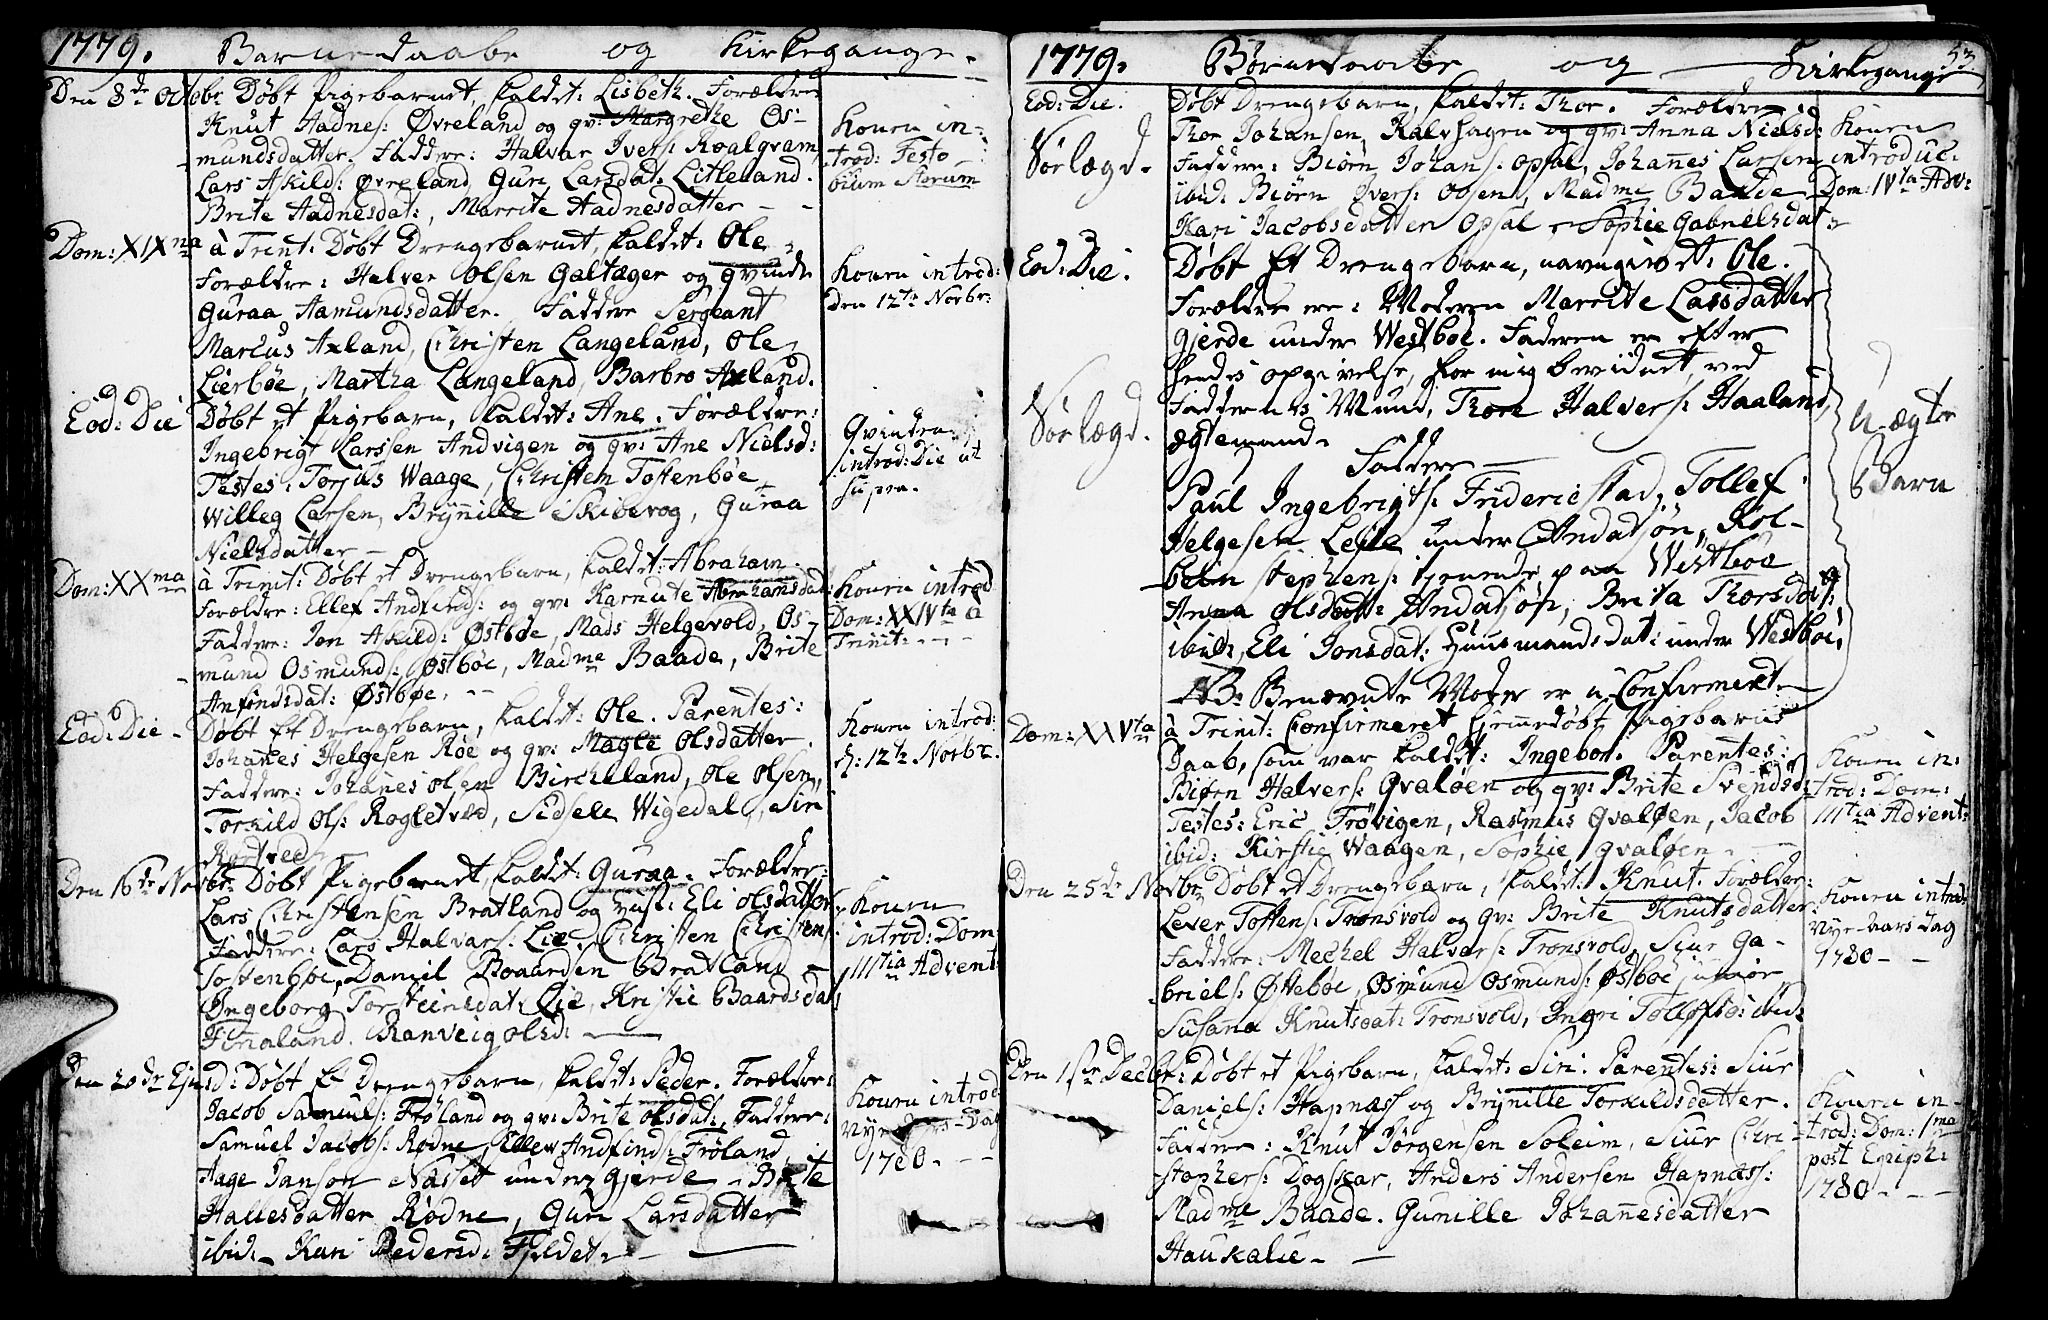 1779. Barnedaabe og Kirkegange.
Den 3de Octobr Døbt Pigebarnet, kaldet: Lisbeth. Forældre
Knut Aadnes: Øvreland og qv: Margrethe Os-
mundsdatter. Faddere: Halvar Ivers: Roalqvam
Lars Askilds: Øvreland, Guri Larsdat: Litleland.
Brite Aadnesdat:, Marrite Aadnesdatter
Konen in-
trod: Festo
bium Storum
Dom: XIXna à Trinit: Døbt Drengebarnet, kaldet: Ole
Forældre: Halver Olsen Galtager og qvinde
Guraa Aamundsdatter. Faddere Sergeant
Marcus Axland, Christen Langeland, Ole
Lierbøe, Martha Langeland, Barbro Axland.
Konen introd:
den 12te Novbr:
Eod: Die Døbt et Pigebarn, kaldet: Ane. Forældre:
Ingebrigt Larssen Andvigen og qv: Ane Nielsd:
Testes: Torjus Waage, Christen Tostenbøe
Willeg Larsen, Brÿnille Skibevog, Guraa
Nielsdatter
Qvinden
introd: Die ut
supra.
Dom: XXma à Trinit: Døbt et Drengebarn, kaldet: Abraham.
Forældre: Ellef Andfinds: og qv: Karnute Abrahamsdat:
Faddere: Jon Askild: Østbøe, Mads Helgevold, Os-
mund Osmunds: Østbøe, Madme Baade, Brite
Anfindsdat: Østbøe.
Konen introd
Dom: XXIVta à
Trinit:
Eod: Die Døbt Et Drengebarn, kaldet: Ole. Parentes:
Johañes Helgesen Røe og qv: Magle Olsdatter
Faddere: Johañes Olsen Bircheland, Ole Olsen,
Torkild Ols: Rogletved, Sidsele Wigedal, Siri
Rørtved
Konen introd:
d: 12te Novbr.
Den 16de Novbr: Døbt Pigebarnet, kaldet: Guraa. Forældre:
Lars Christensen Bratland og Hust: Eli Olsdatter
Faddere: Lars Halvars: Lie, Christen Christens:
Tostenbøe, Daniel Boaardsen Bratland
Ingeborg Torsteinsdat: Lie, Kristie Baardsdat:
Ranveig Olsd:
Konen
introd: Dom:
IIItia Advent:
Den 20de Ejusd: Døbt Et Drengebarn, kaldet: Peder. Forældre:
Jacob Samuels: Frøland og qv: Brite Olsdat:, Faddere:
Samuel Jacobs: Rødne, Ellev Andfinds: Frøland,
Aage Janson Nasset under Gjerde, Brite
Hallesdatter Rødne, Guri Larsdatter
ibid: Kari Pedersd: Fjeldet.
Konen introd
Nye-Aars-Dag
1780.
1779. Børnedaabe og Kirkegange 53
Eod: Die. Døbt Drengebarn, kaldet: Thor. Forældre
Thor Johansen, Kalvhagen og qv: Anna Nielsd:
Sørlægd. Faddere: Biørn Johans: Opsal, Johañes Larsen
ibid: Biørn Ivers: Madme Baade
Kari Jacobsdatter Opsal, Sophie Gabrielsdat:
Konen
introduc:
Dom: IVta Adv:
Eod: Die. Døbt Et Drengebarn, navngivet: Ole.
Forældre ere: Moderen Marrite Larsdatter
Gjerde under Westbøe. Faderen er efter
hendes opgivelse, for mig bevidnet, ved
Sørlægd. Faddernes Mund, Thore Halvers: Haaland,
ægtemand.
Faddere
Paul Ingebrigts: Friderichstad, Tollef
Helgesen Leste under Andatsøn, Kol-
bein Stephens: tjenende paa Westbøe
Anna Olsdatt: Andatsøn, Brita Thorsdat:
ibid:, Eli Jonsdat: Huusmands dat: under Westbøe,
NB: Benævnte Moder er u-Confirmert.
U-ægte
Barn
Dom: XXVta à Trinit: Confirmeret hjemmedøbt Pigebarns
Daab, som var kaldet: Ingebor. Parentes:
Biørn Halvers: Qvaløen og qv: Brite Svendsd:
Testes: Eric Frøvigen, Rasmus Qvaløen, Jacob
ibid: Kirstie Waagen, Sophie Qvaløen
Konen in-
trod: Dom:
IIItia Advent:
Den 25de Novbr: Døbt et Drengebarn, kaldet: Knut. Forældre:
Lever Tostens: Tronsvold og qv: Brite Knutsdatter
Faddere: Mechel Halvars: Tronsvold, Siur Ga-
briels: Østebøe, Osmund Osmunds: Østbøe junior
Susana Knutsdat: Tronsvold, Ingri Tollefsd: ibid:
Konen introd:
Nye-Aars Dag
1780
Den 1ste Decbr: Døbt et Pigebarn, kaldet: Siri. Parentes: Siur
Daniels: Hapnæss og Brÿnille Torkildsdatter.
Faddere: Knut Jørgensen Soleim, Siur Chri-
stophers: Dogsscar, Anders Andersen Hapnæss:
Madme Baade. Gunille Johañesdatter
Haukalie
Konen in-
trod: Dom: 1ma
post Epiph:
1780